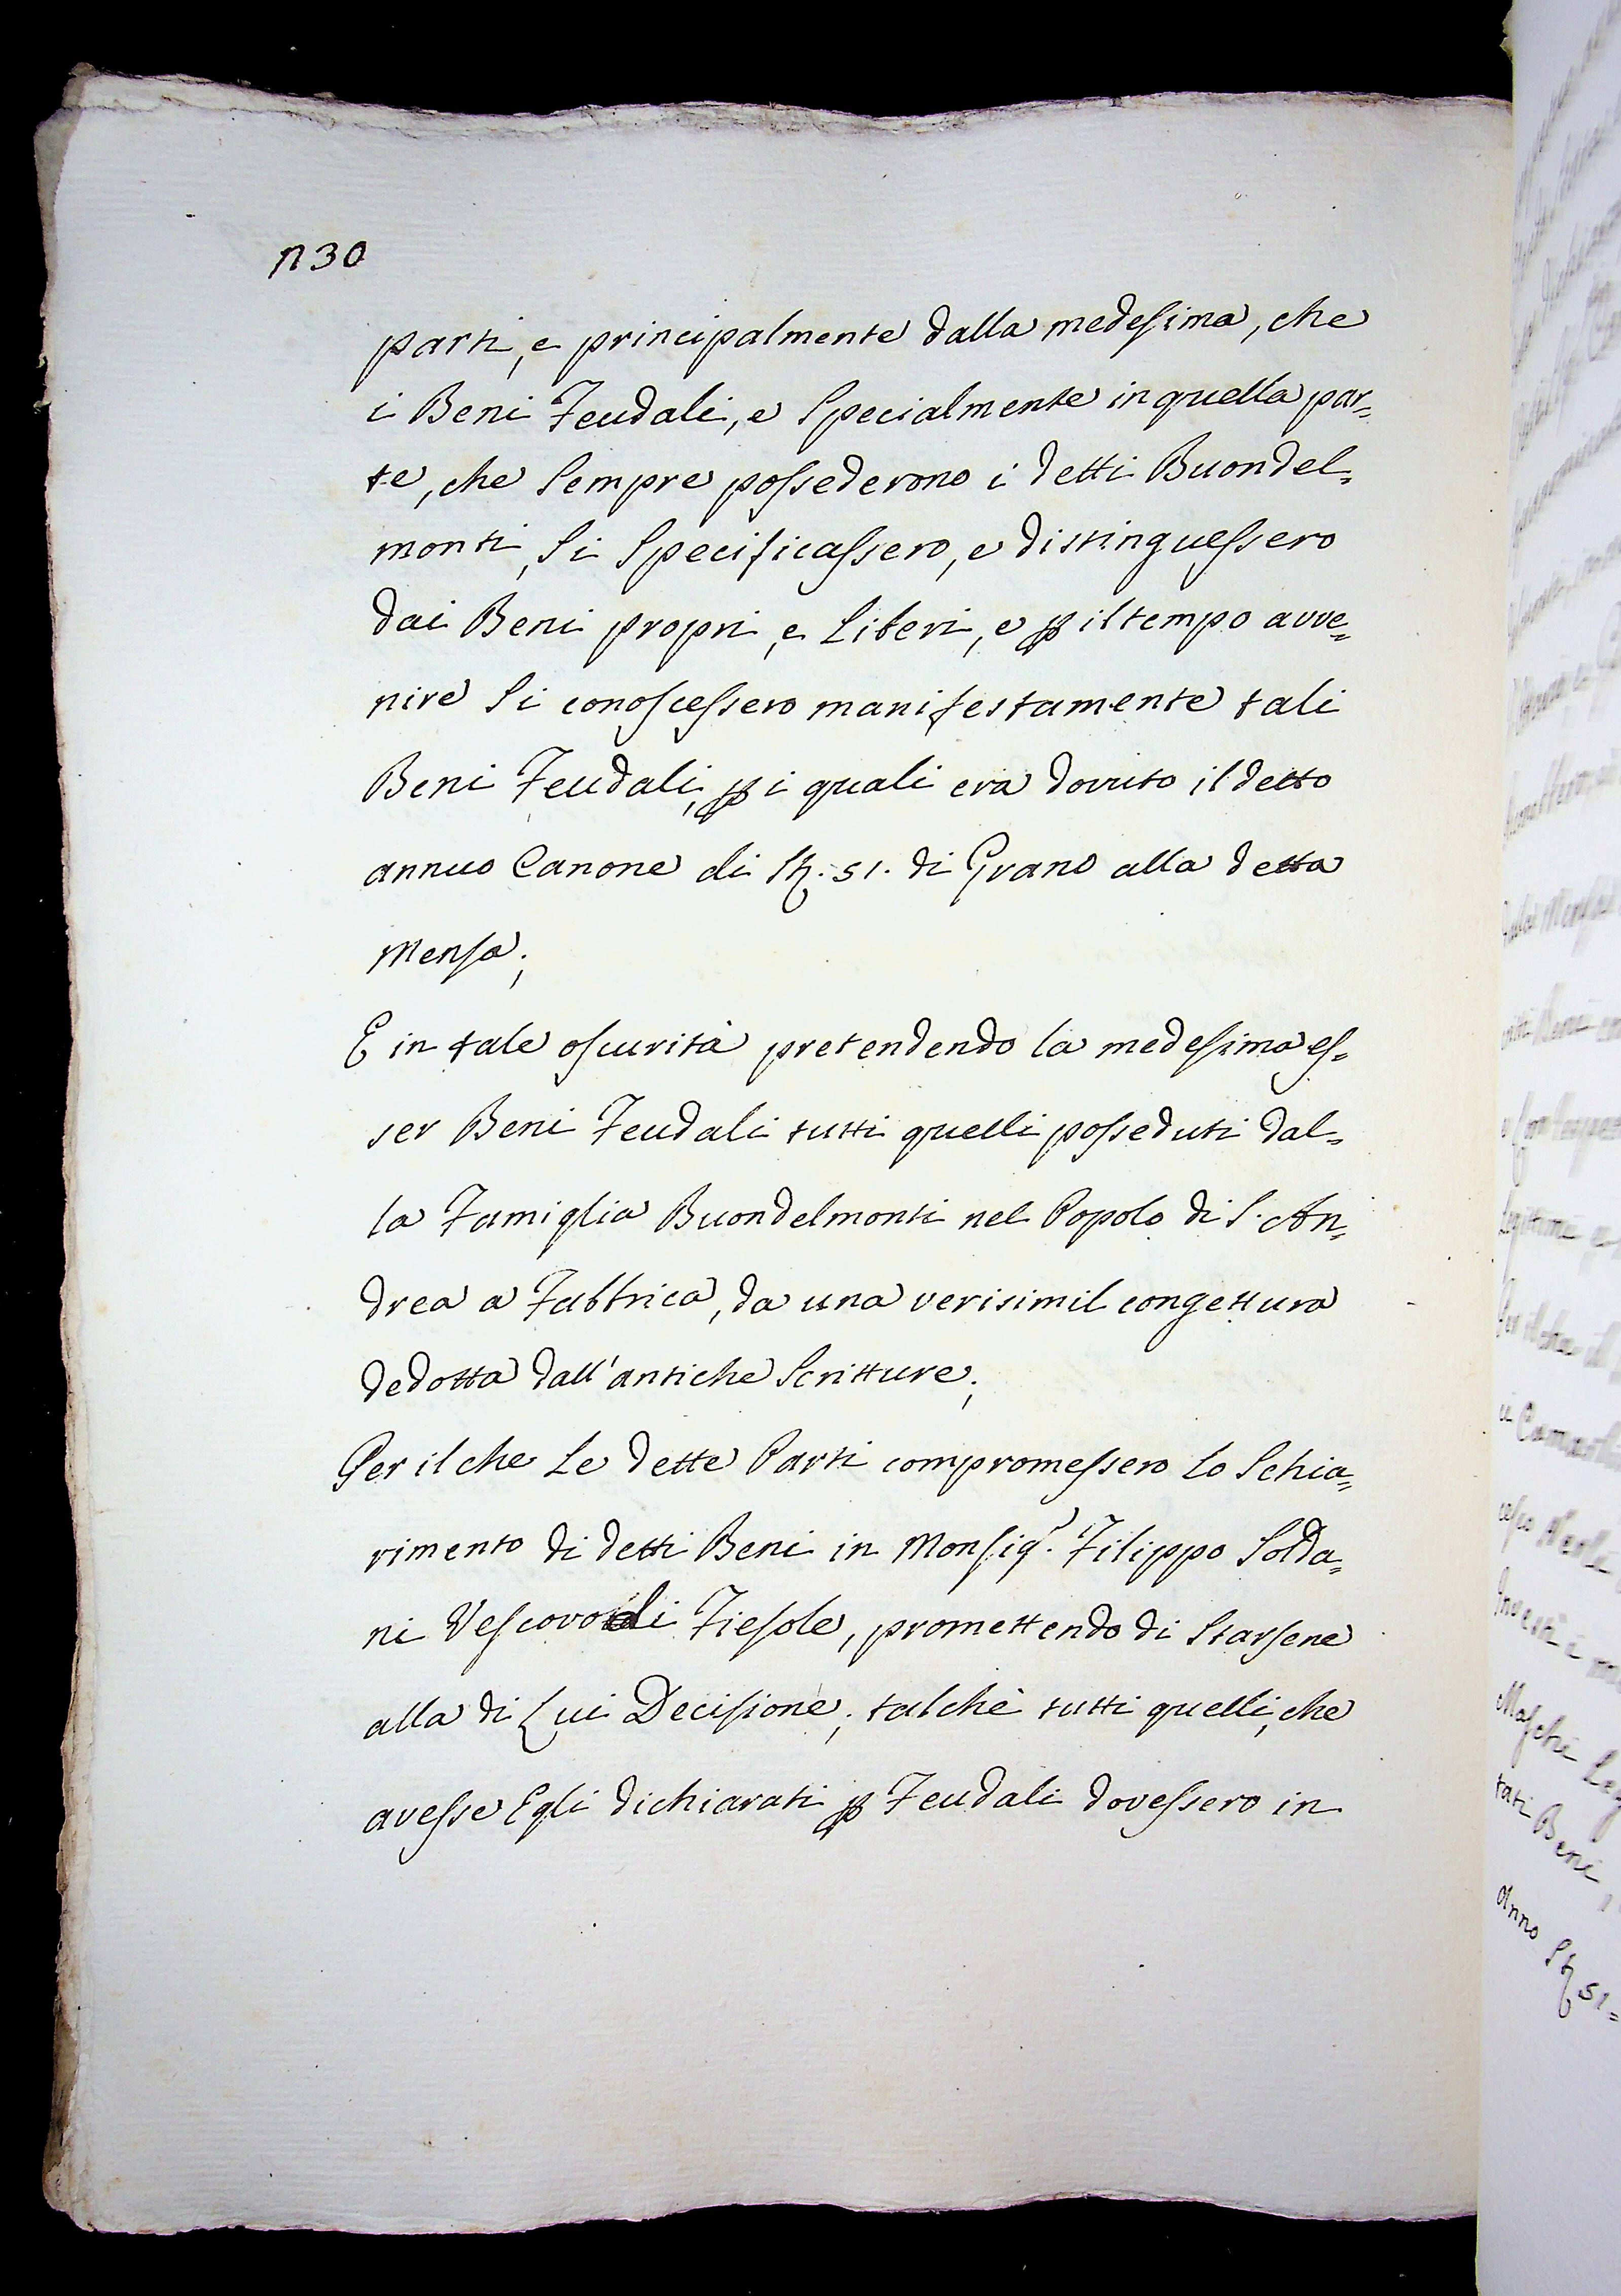 n 30
parti, e principalmente dalla medesima, che
i Beni Feudali, e Specialmente in quella par=
te, che Sempre possederono i detti Buondel=
monti, Si Specificassero, e distinguessero
dai Beni propri, e Liberi, e ꝑ il tempo avve=
nire Si conoscessero manifestamente tali
Beni Feudali, ꝑ i quali era dovuto il detto
annuo Canone di St. 51. di Grano alla detta
Mensa;
E in tale oscurità pretendendo la medesima es=
ser Beni Feudali tutti quelli posseduti dal=
la Famiglia Buondelmonti nel Popolo di S. An=
drea a Fabbrica, da una verisimil congettura
dedotta dall'antiche Scritture;
Per il che Le dette Parti compromessero Lo Schia=
rimento di detti Beni in Monsig.r Filippo Solda=
ni Vescovo di Fiesole, promettendo di Starsene
alla di Lui Decisione; talchè tutti quelli, che
avesse Egli dichiarati ꝑ Feudali dovessero in
Legittima e
Per il che il
Maschi Leg
tati Beni,
Anno St 51=